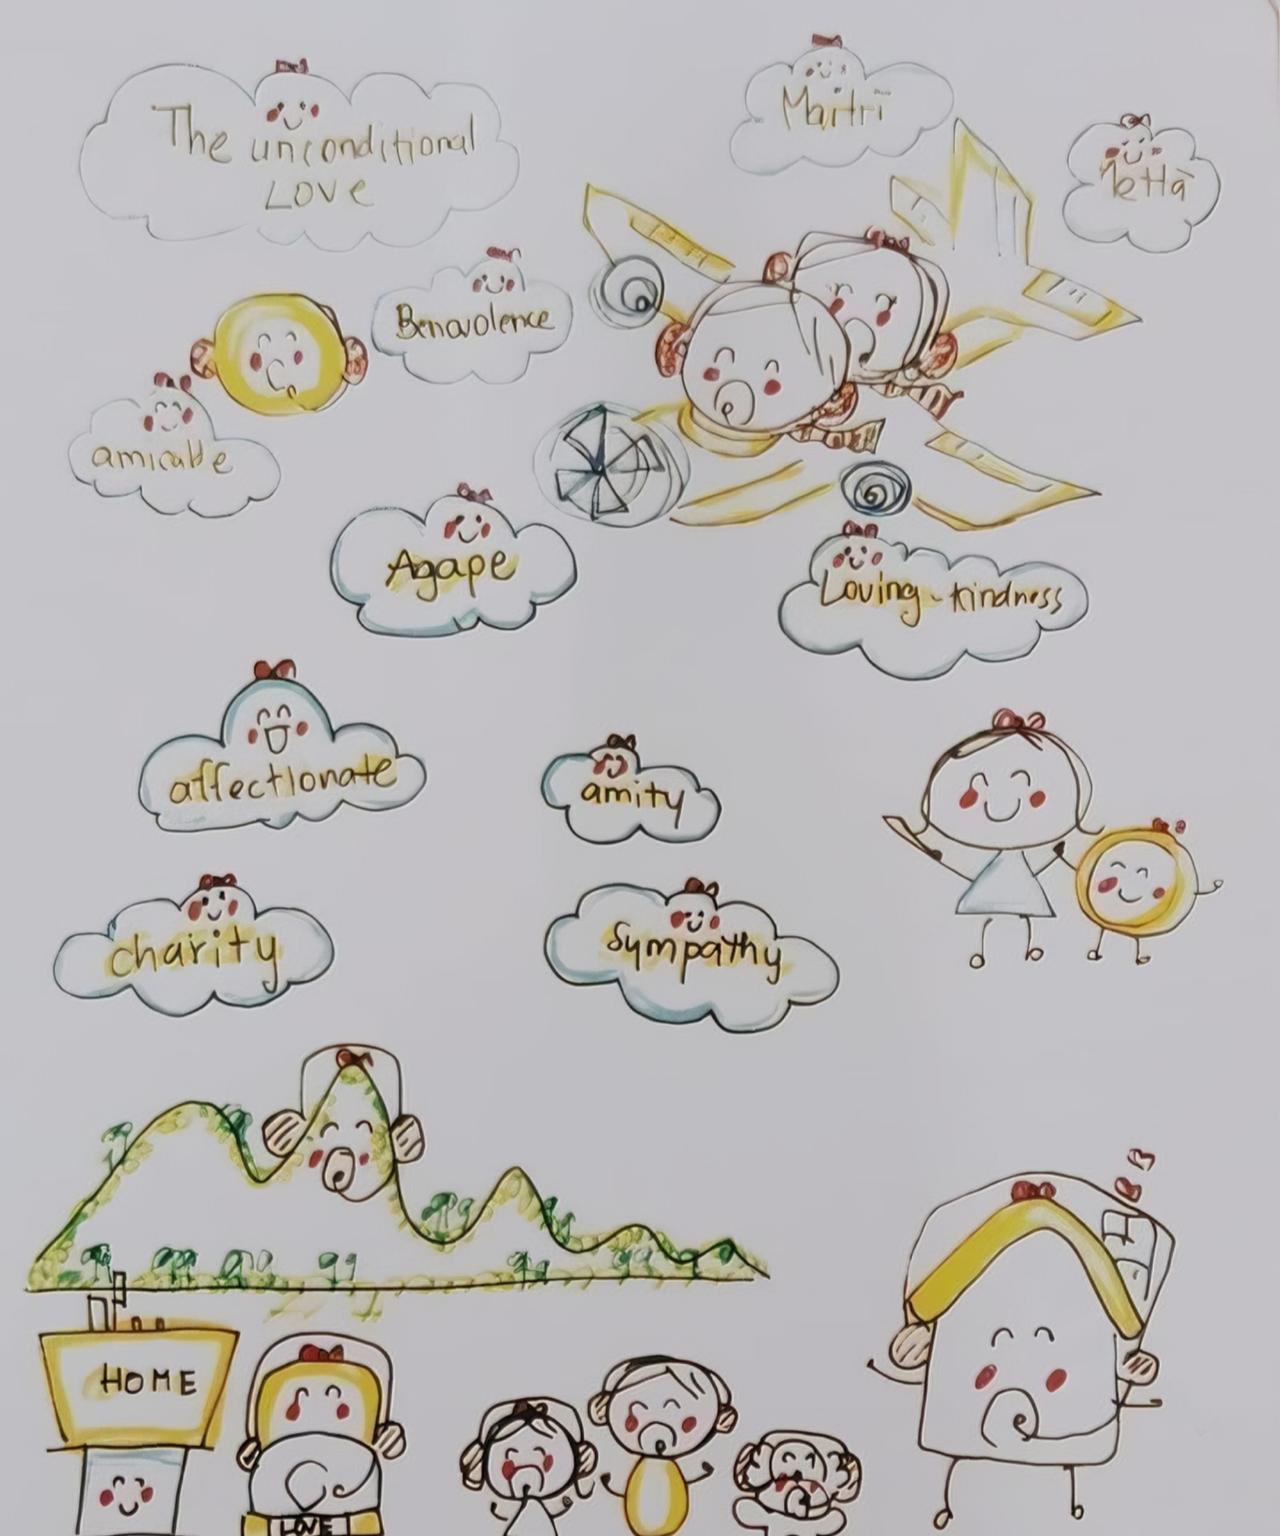 The unconditional
LOVE
Maitri
Mettā
Benovolence
amicable
Agape
Loving-kindness
affectionate
amity
charity
Sympathy
HOME
LOVE